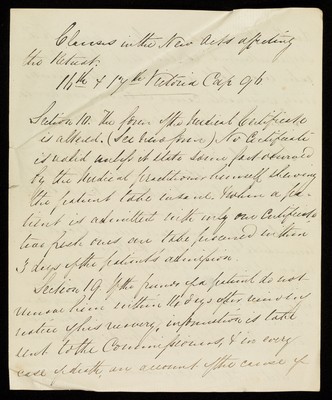 Clauses in the New Acts affecting
the Retreat:
16th & 17th Victoria Cap 96.
Section 10. The form of the Medical Certificate
is altered. (See new form). No Certificate
is valid unless it state some fact observed
by the Medical Practitioner himself shewing
the patient to be insane. & when a pa-
tient is admitted with only one Certificate
two fresh ones are to be procured within
3 days of the patient's admission.
Section 19. If the friends of a patient do not
remove him within 14 days after receiving
notice of his recovery, information is to be
sent to the Commissioners, & in every
case of death, an account of the cause &